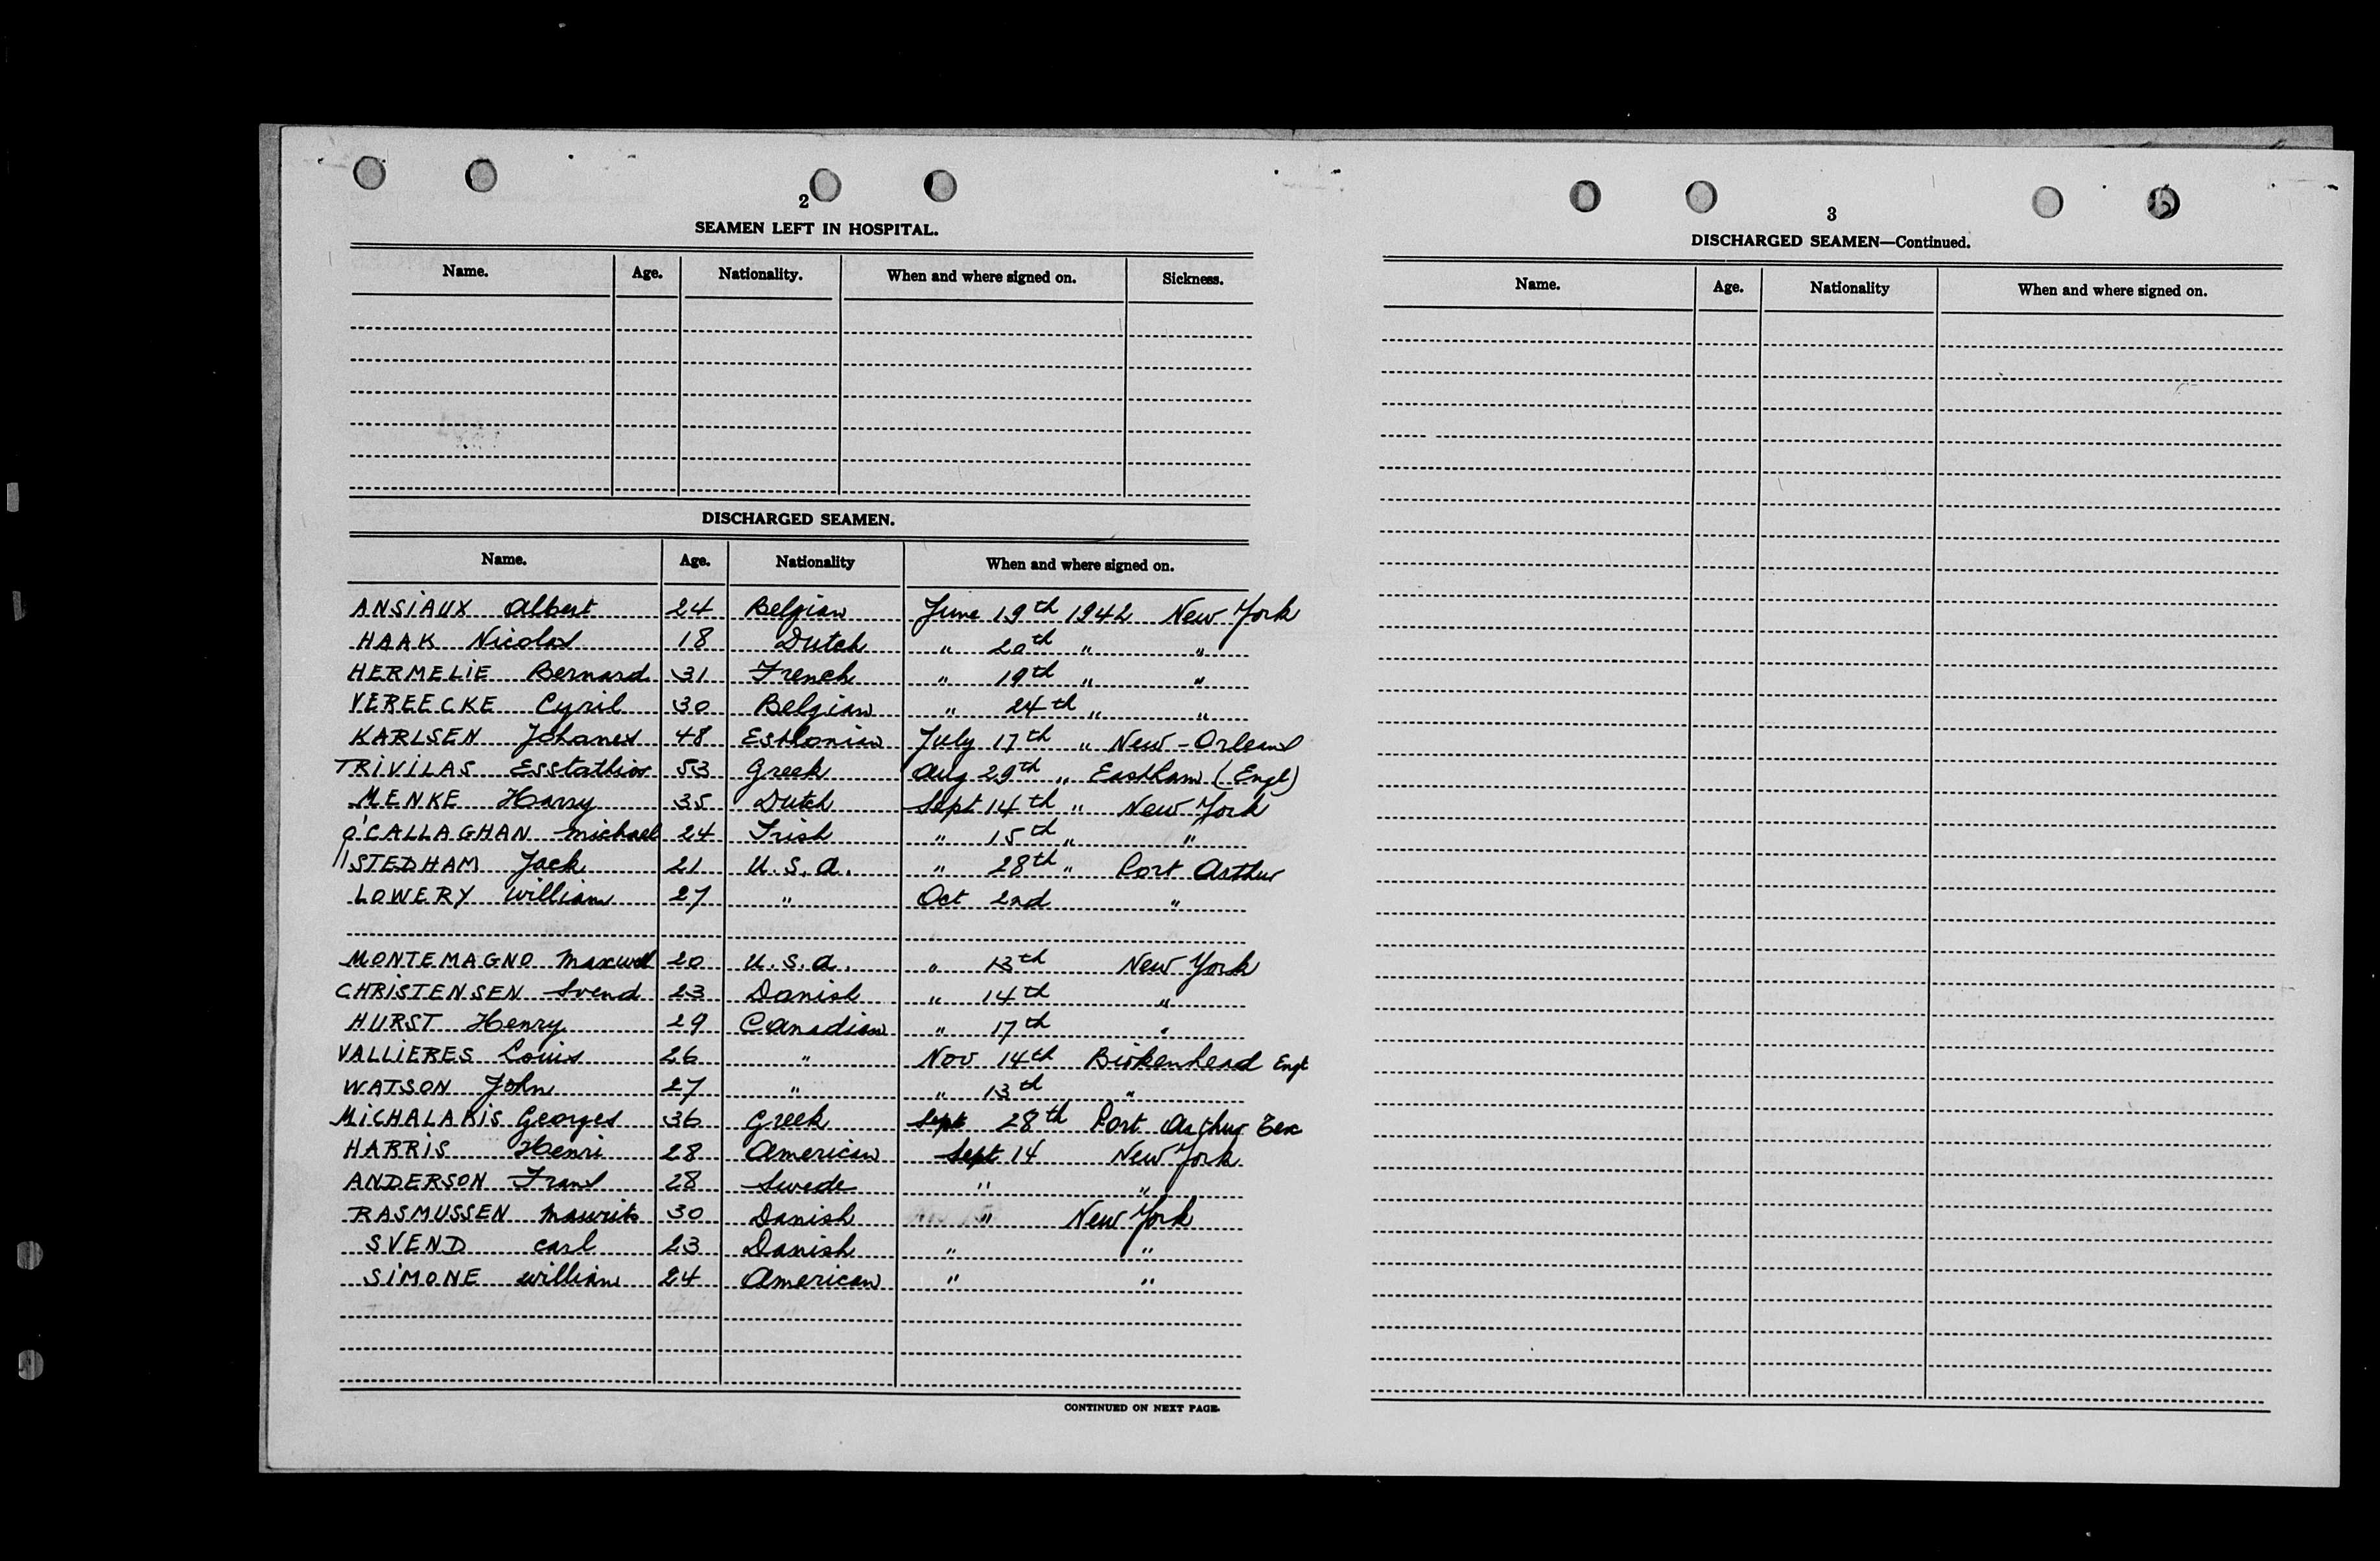 2
SEAMEN LEFT IN HOSPITAL.
Name. Age. Nationality. When and where signed on. Sickness.
DISCHARGED SEAMEN.
Name. Age. Nationality When and where signed on.
ANSIAUX Albert 24 Belgian June 19th 1942 New York
HAAK Nicolas 18 Dutch " 20th " "
HERMELIE Bernard 31 French " 19th " "
VEREECKE Cyril 30 Belgian " 24th " "
KARLSEN Johanes 48 Esthonian July 17th " New-Orleans
TRIVILAS Esstathios 53 Greek Aug 29th " Eastham (Engl)
MENKE Harry 35 Dutch Sept 14th " New York
O'CALLAGHAN Michael 24 Irish " 15th " "
STEDHAM Jack 21 U.S.A. " 28th " Port Arthur
LOWERY William 27 " Oct 2nd "
MONTEMAGNO Maxwell 20 U.S.A. " 13th New York
CHRISTENSEN Svend 23 Danish " 14th "
HURST Henry 29 Canadian " 17th "
VALLIERES Louis 26 " Nov 14th Birkenhead Engl
WATSON John 27 " " 13th "
MICHALAKIS Georges 36 Greek Sept 28th Port Arthur Tex
HARRIS Henri 28 American Sept 14 New York
ANDERSON Frans 28 Swede " "
RASMUSSEN Maurits 30 Danish " " New York
SVEND Carl 23 Danish " "
SIMONE William 24 American " "
CONTINUED ON NEXT PAGE.
3
DISCHARGED SEAMEN—Continued.
Name. Age. Nationality When and where signed on.